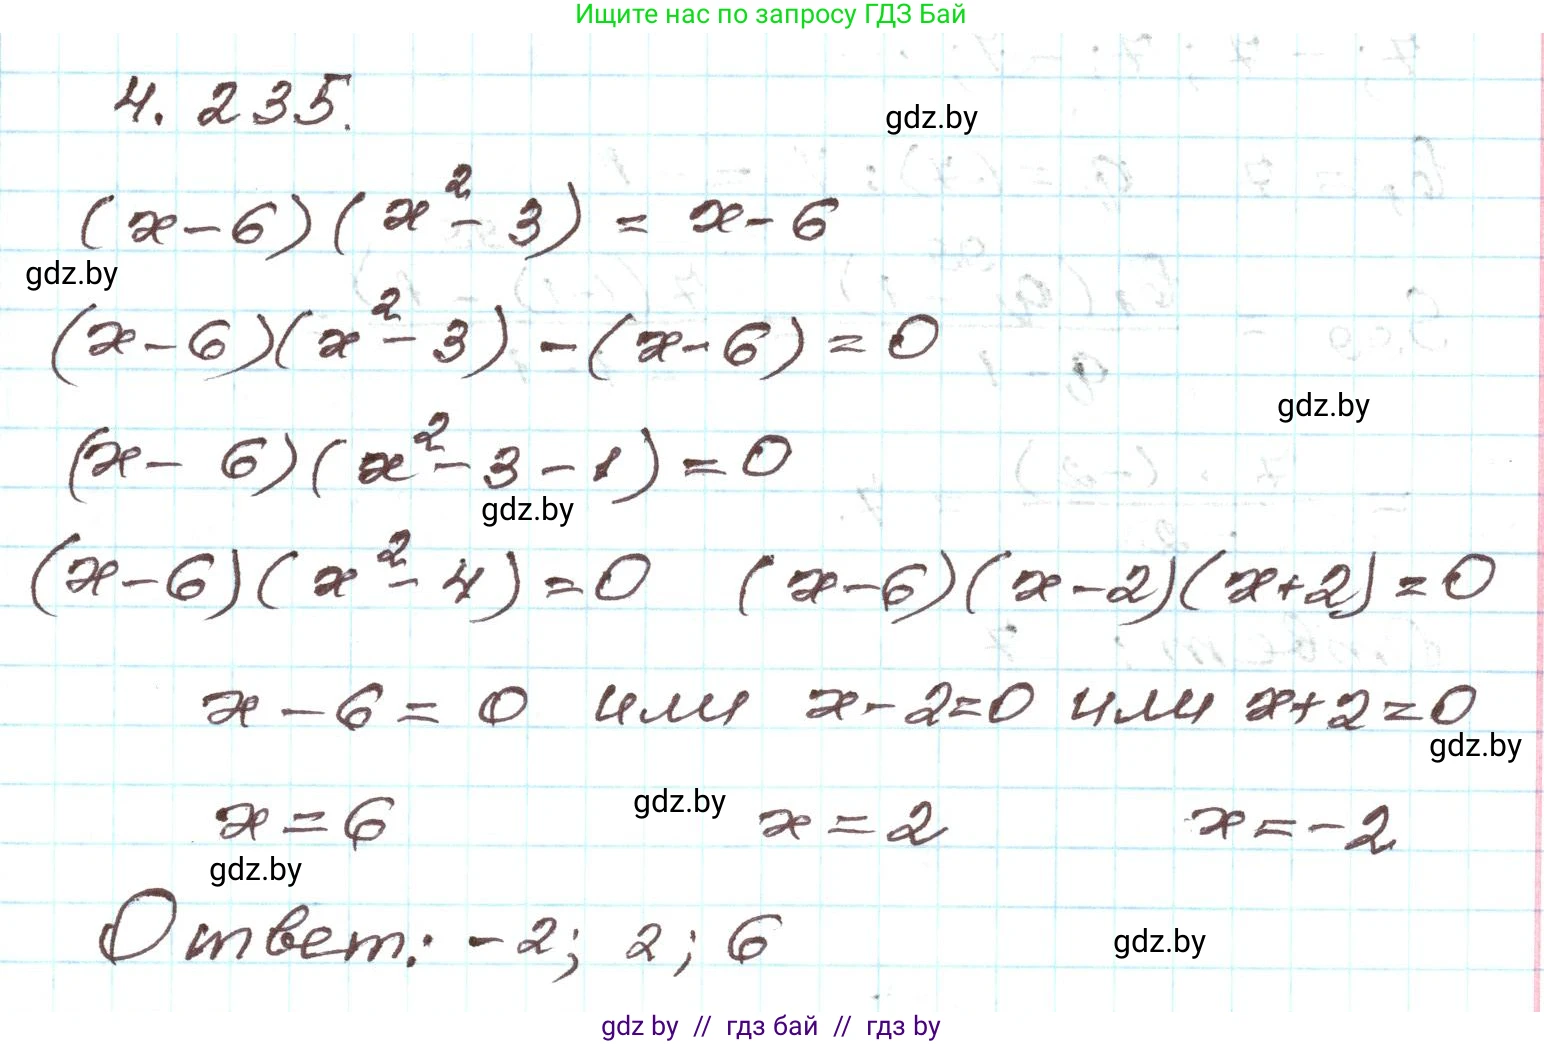 Ищите нас по запросу ГДЗ Бай
4. 235.
gdz.by
(x - 6)(x² - 3) = x - 6
gdz.by
(x - 6)(x² - 3) - (x - 6) = 0
gdz.by
(x - 6)(x² - 3 - 1) = 0
gdz.by
(x - 6)(x² - 4) = 0 (x - 6)(x - 2)(x + 2) = 0
x - 6 = 0 или x - 2 = 0 или x + 2 = 0
gdz.by
x = 6 gdz.by x = 2 x = -2
gdz.by
Ответ: -2; 2; 6
gdz.by
gdz by // гдз бай // гдз by